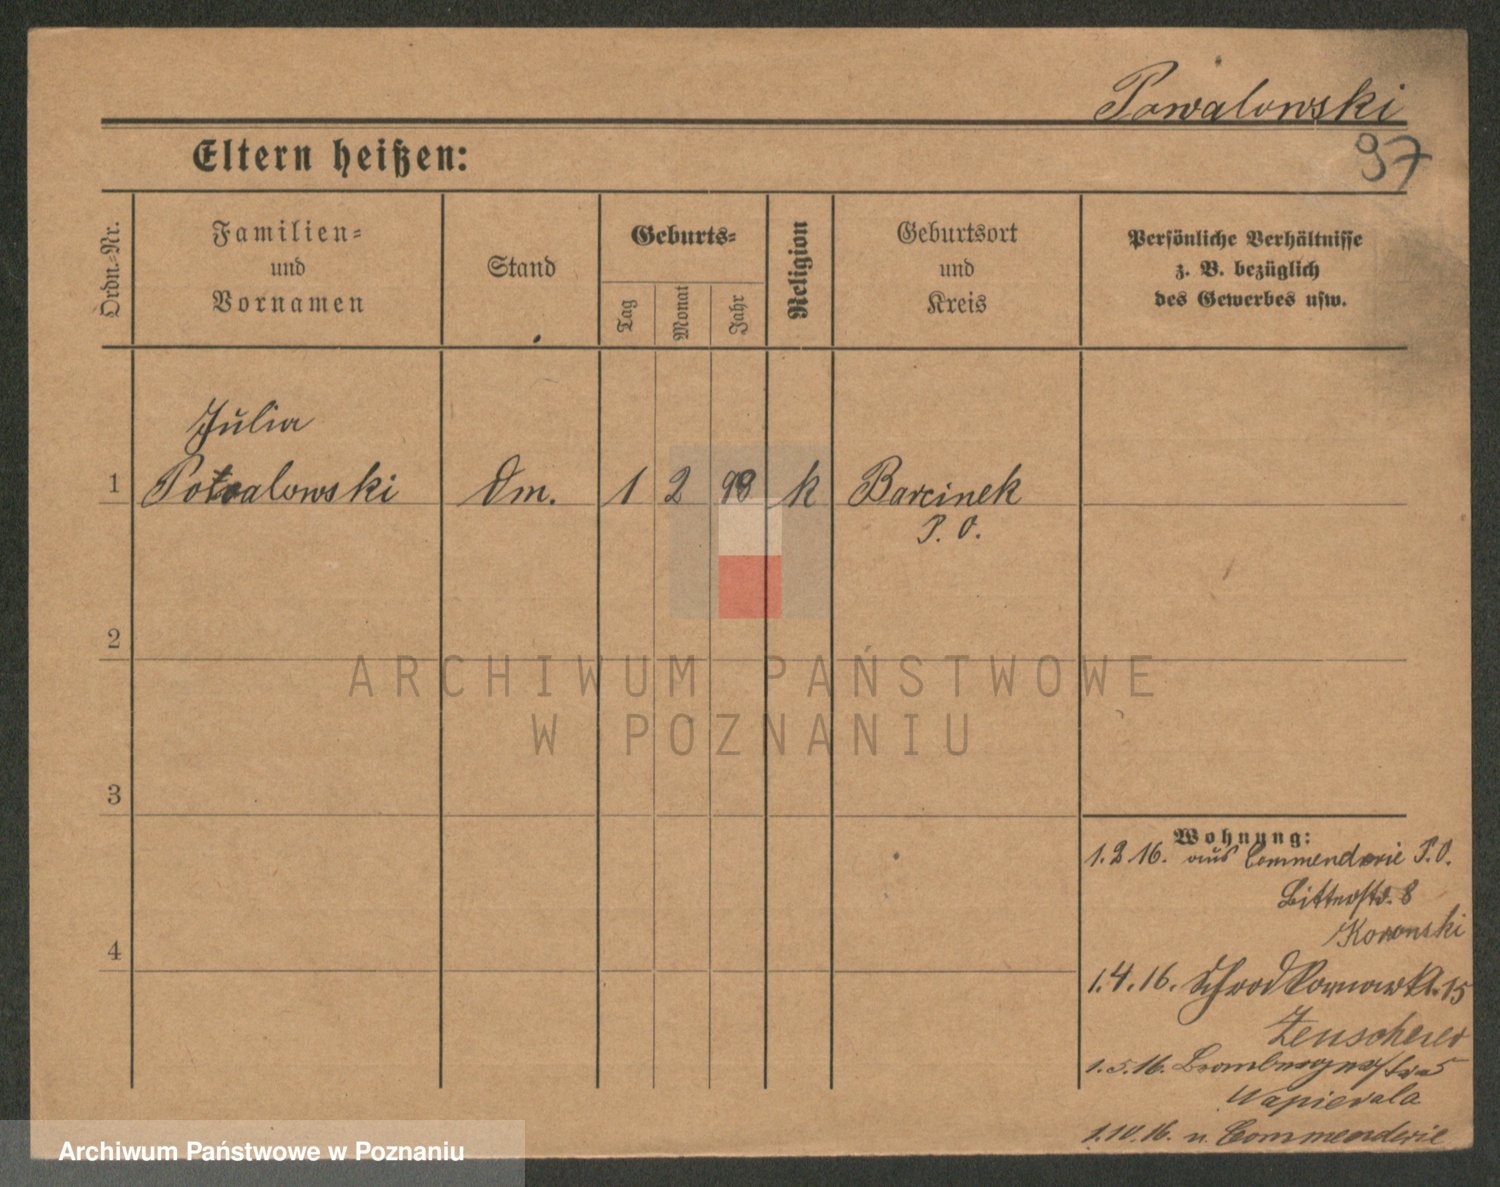 Powalowski
97
Eltern heißen:
Ordn.-Nr.
Familien-
und
Vornamen
Stand
Geburts-
Tag
Monat
Jahr
Religion
Geburtsort
und
Kreis
Persönliche Verhältnisse
z. B. bezüglich
des Gewerbes usw.
Julia
1 Powalowski Dm. 1 2 98 k Barcinek
P. O.
2
ARCHIWUM PAŃSTWOWE
W POZNANIU
3
Wohnung:
1.2.16. aus Commenderie P.O.
8
4
1.4.16. 15
1.5.16. Brombergerstr. 5
Wapierala
1.10.16. n. Commenderie
Archiwum Państwowe w Poznaniu